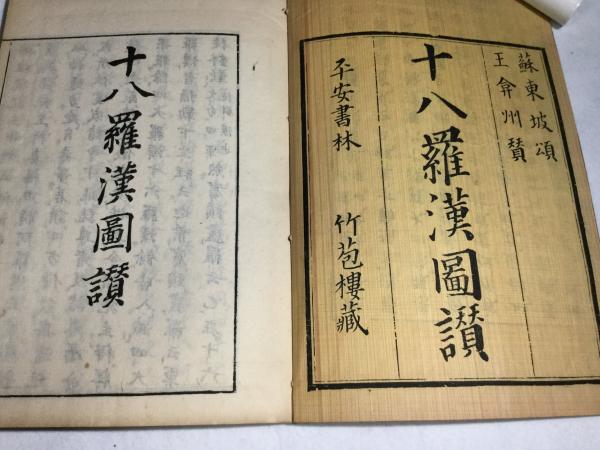 蘇東坡頌
王弇州贊
十八羅漢圖讚
平安書林 竹苞樓藏
十八羅漢圖讚